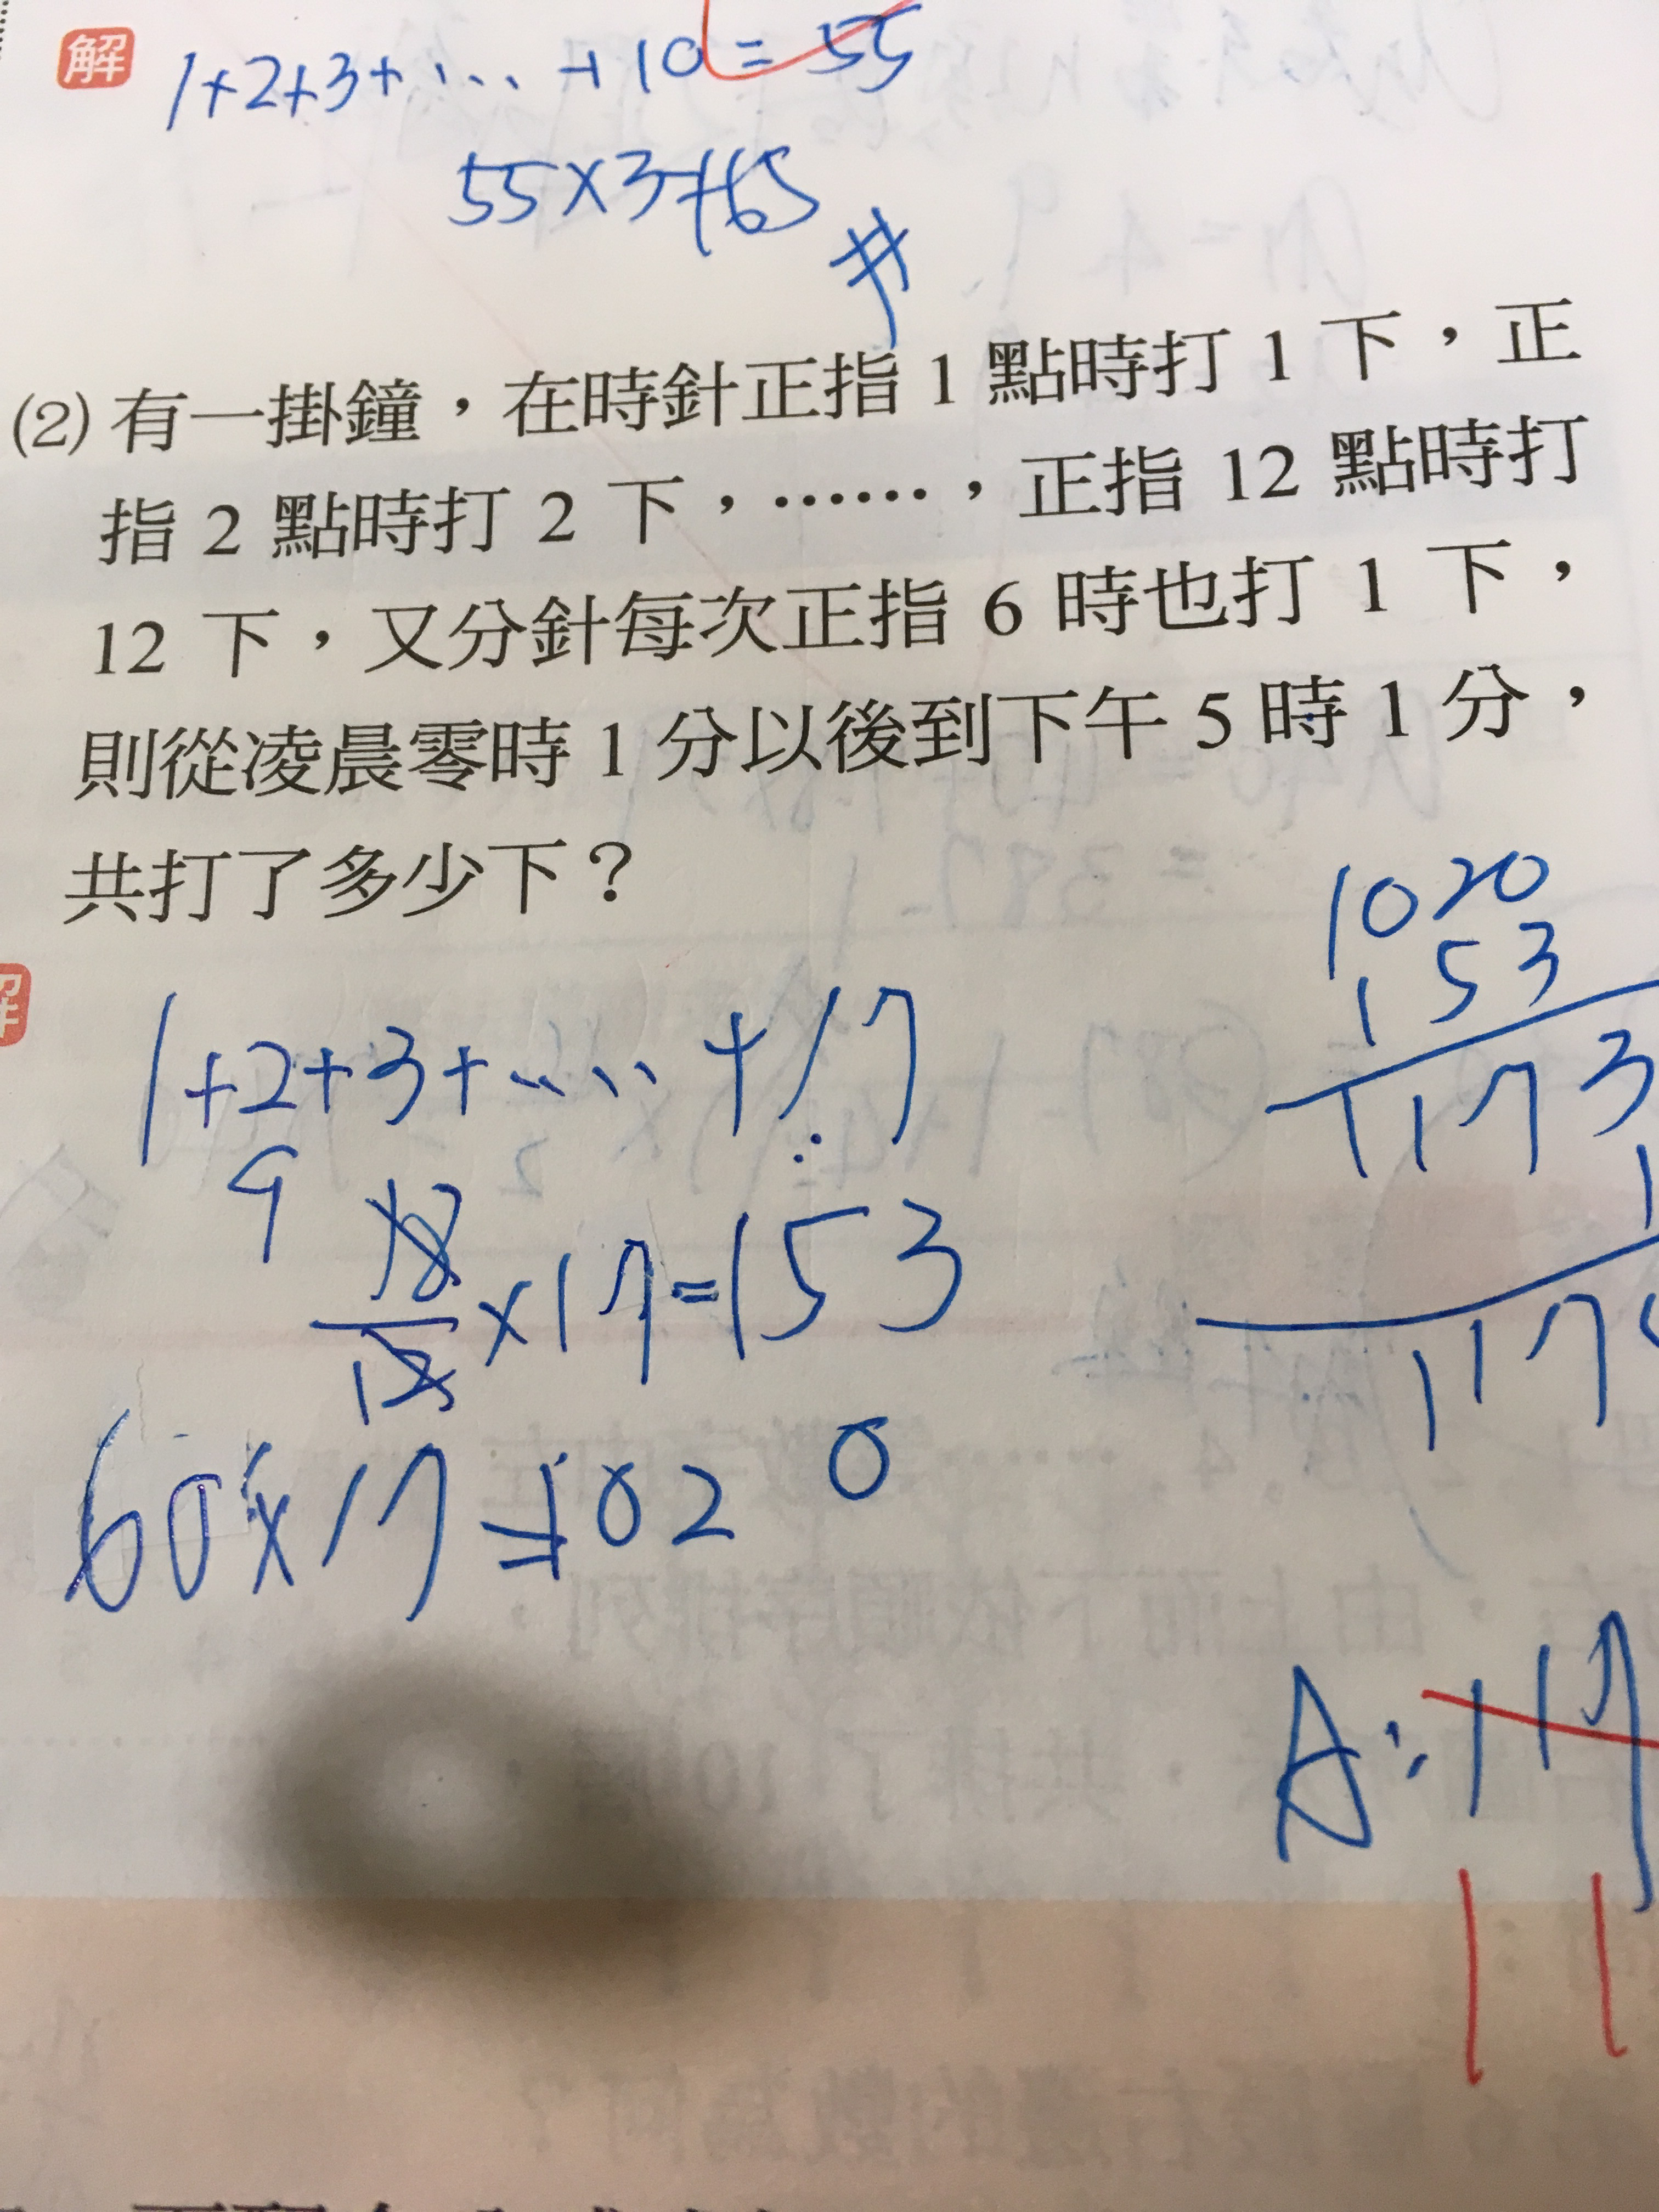 解 1+2+3+……+10=55
55×3=165
#
(2) 有一掛鐘，在時針正指 1 點時打 1 下，正
指 2 點時打 2 下，……，正指 12 點時打
12 下，又分針每次正指 6 時也打 1 下，
則從凌晨零時 1 分以後到下午 5 時 1 分，
共打了多少下？
1020
153
1173
1
117
解
1+2+3+……+17
9
18/12×17=153
60×17=1020
A:117
11